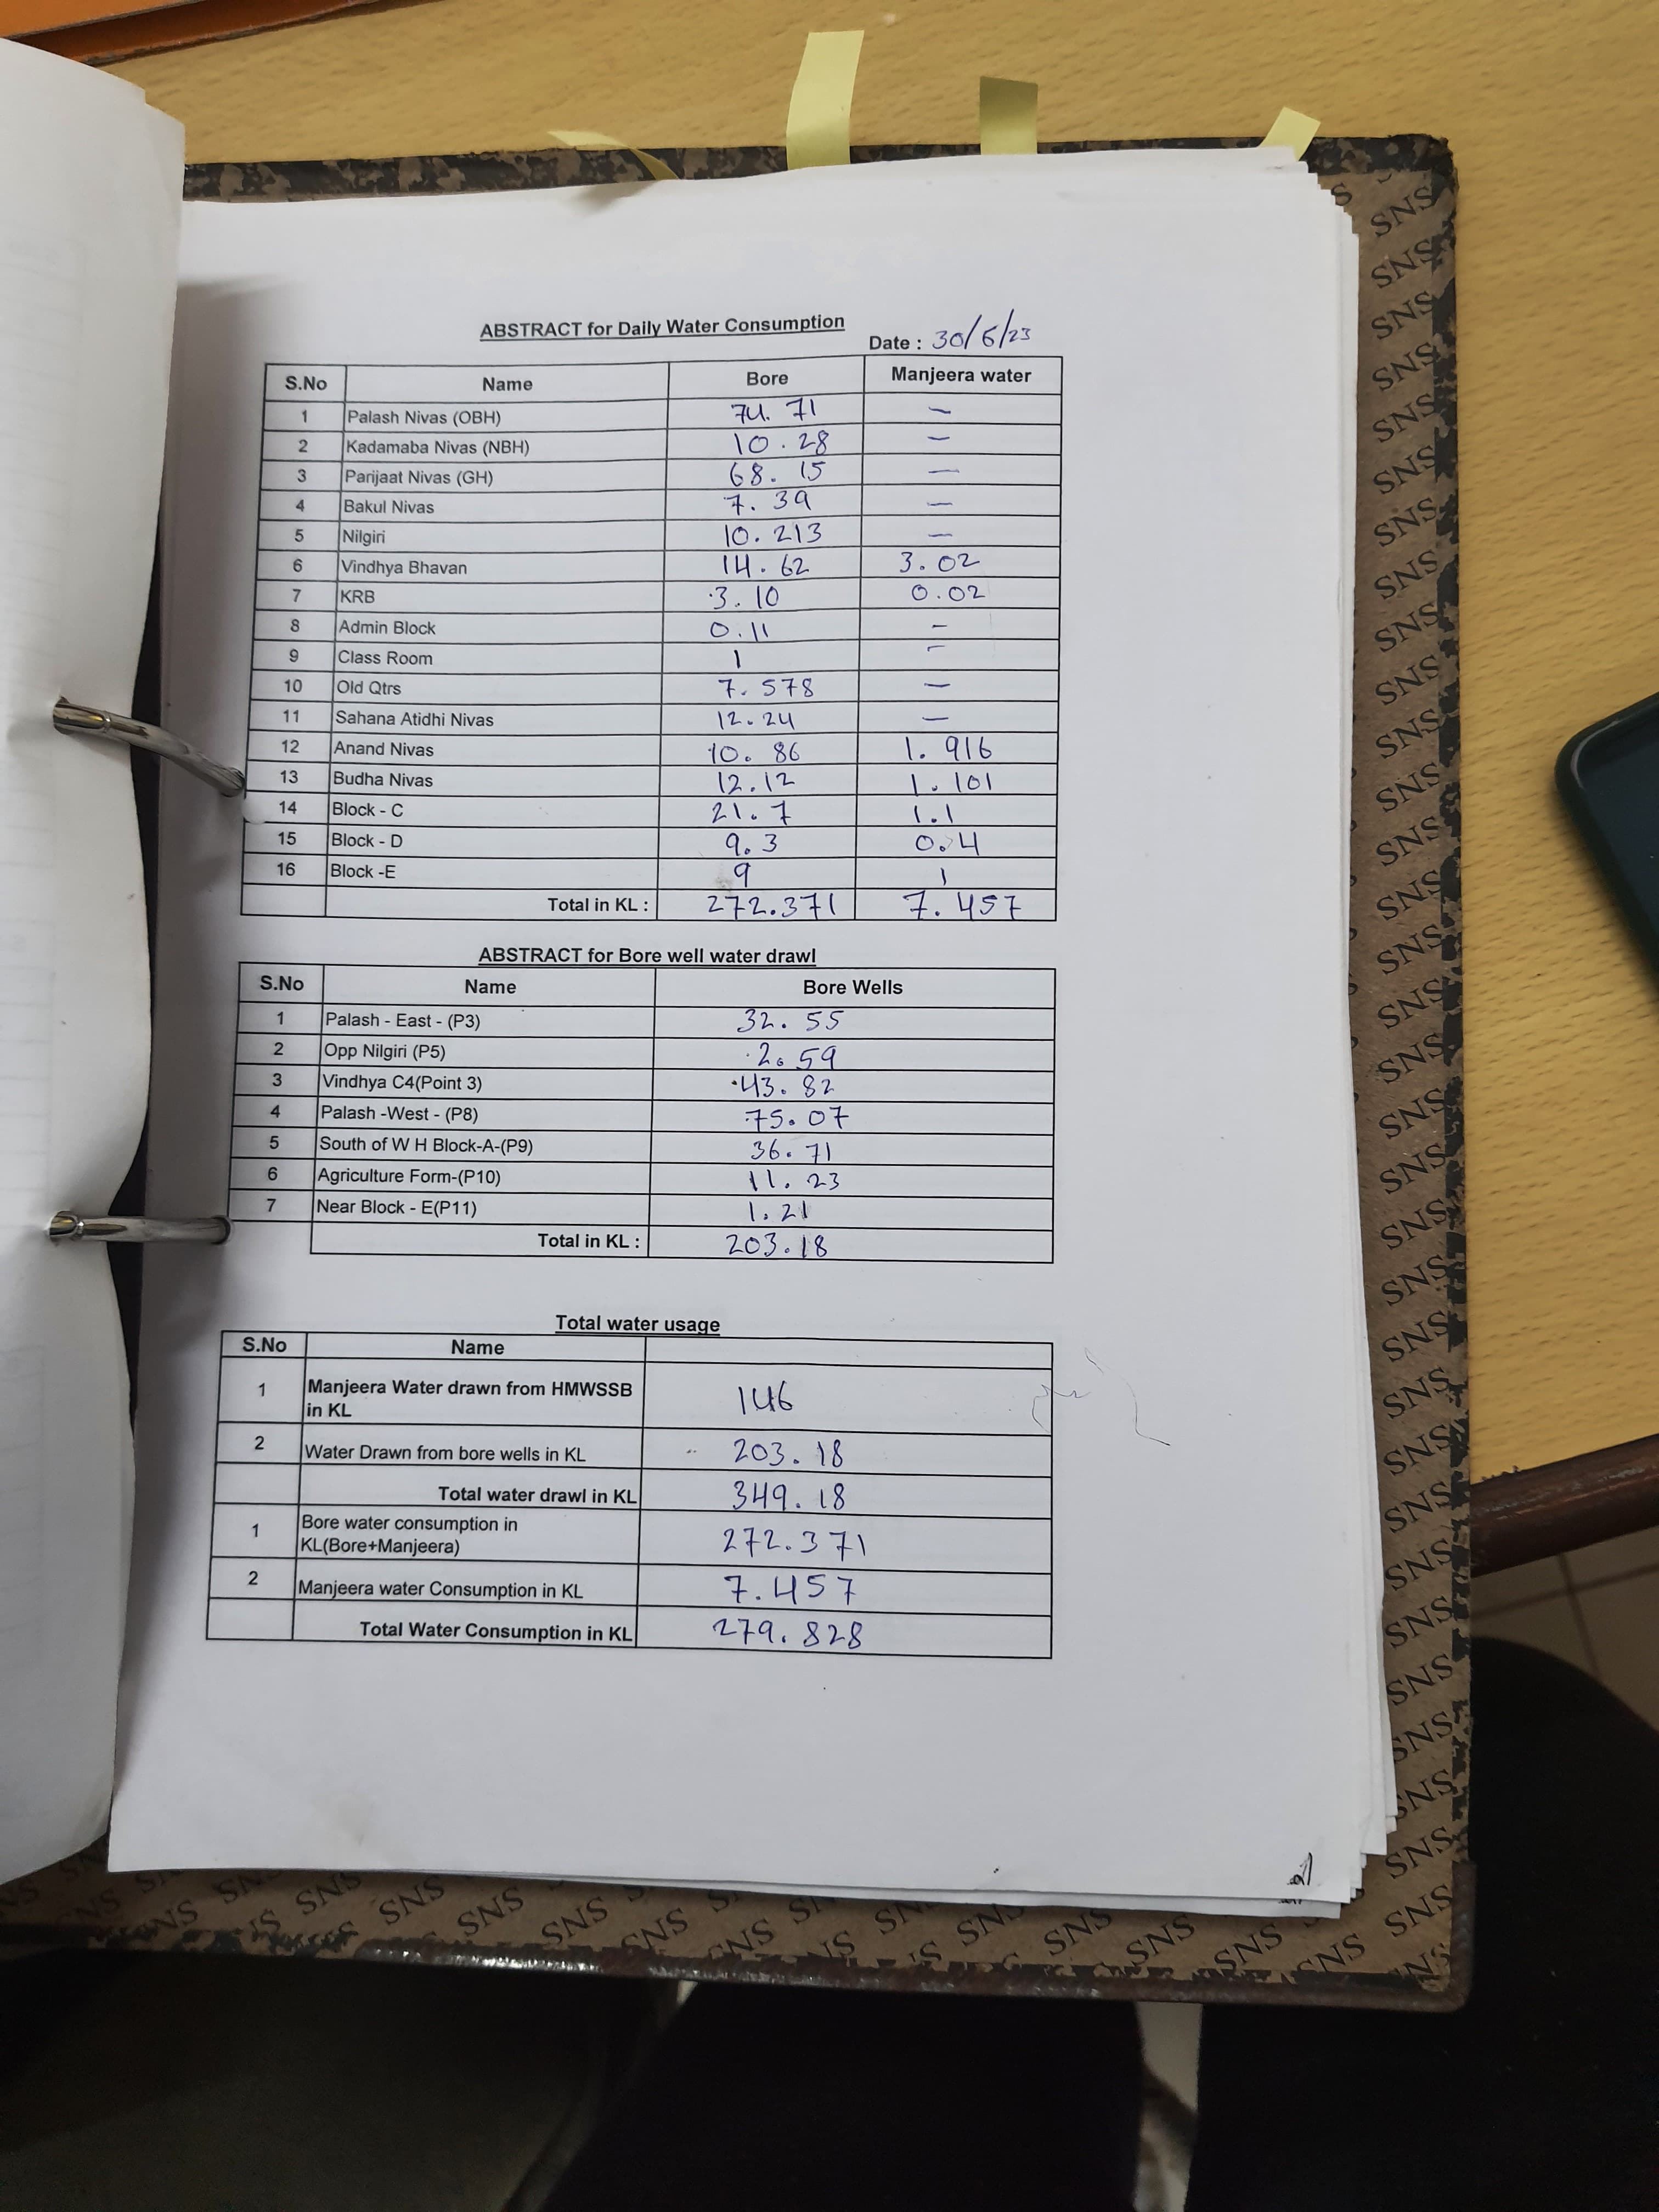 ABSTRACT for Daily Water Consumption
Date : 30/6/23
S.No Name Bore Manjeera water
1 Palash Nivas (OBH) 74.71 —
2 Kadamaba Nivas (NBH) 10.28 —
3 Parijaat Nivas (GH) 68.15 —
4 Bakul Nivas 7.39 —
5 Nilgiri 10.213 —
6 Vindhya Bhavan 14.62 3.02
7 KRB 3.10 0.02
8 Admin Block 0.11 -
9 Class Room 1 -
10 Old Qtrs 7.578 —
11 Sahana Atidhi Nivas 12.24 —
12 Anand Nivas 10.86 1.916
13 Budha Nivas 12.12 1.101
14 Block - C 21.7 1.1
15 Block - D 9.3 0.4
16 Block -E 9 1
Total in KL : 272.371 7.457
ABSTRACT for Bore well water drawl
S.No Name Bore Wells
1 Palash - East - (P3) 32.55
2 Opp Nilgiri (P5) 2.59
3 Vindhya C4(Point 3) 43.82
4 Palash -West - (P8) 75.07
5 South of W H Block-A-(P9) 36.71
6 Agriculture Form-(P10) 11.23
7 Near Block - E(P11) 1.21
Total in KL : 203.18
Total water usage
S.No Name
1 Manjeera Water drawn from HMWSSB in KL 146
2 Water Drawn from bore wells in KL 203.18
Total water drawl in KL 349.18
1 Bore water consumption in KL(Bore+Manjeera) 272.371
2 Manjeera water Consumption in KL 7.457
Total Water Consumption in KL 279.828
SNS